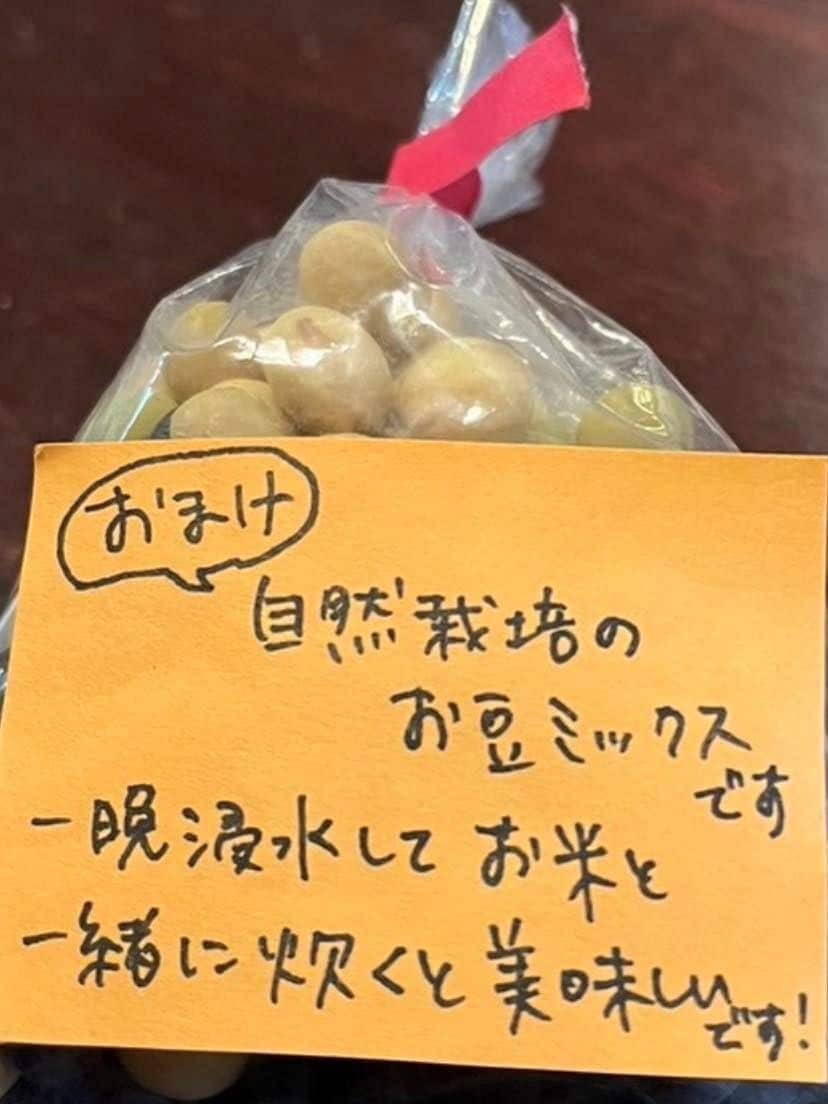 おまけ
自然栽培の
お豆ミックス
です
一晩浸水してお米と
一緒に炊くと美味しい
です!